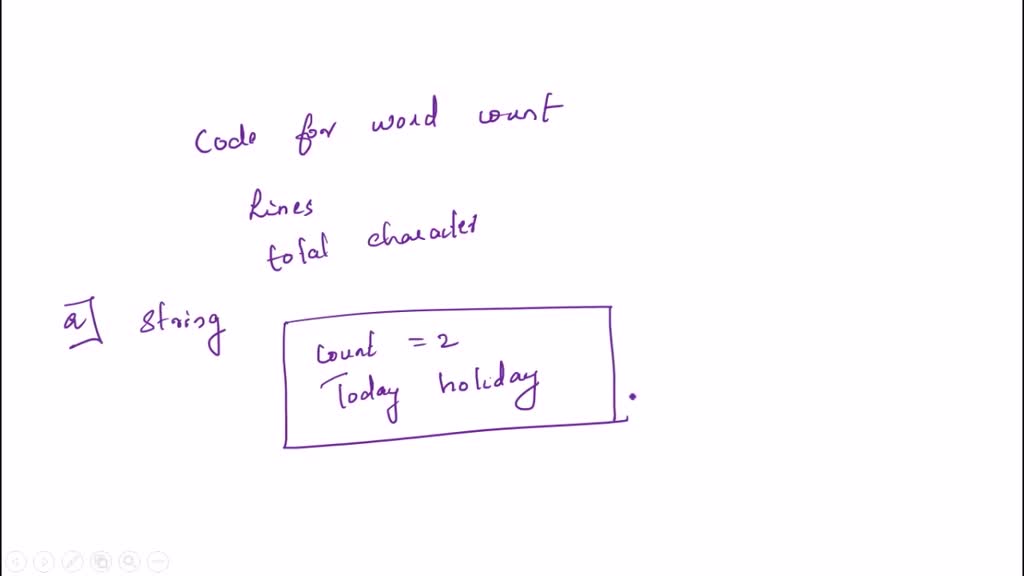 Code for word count
Lines
total character
a] string
Count = 2
Today holiday